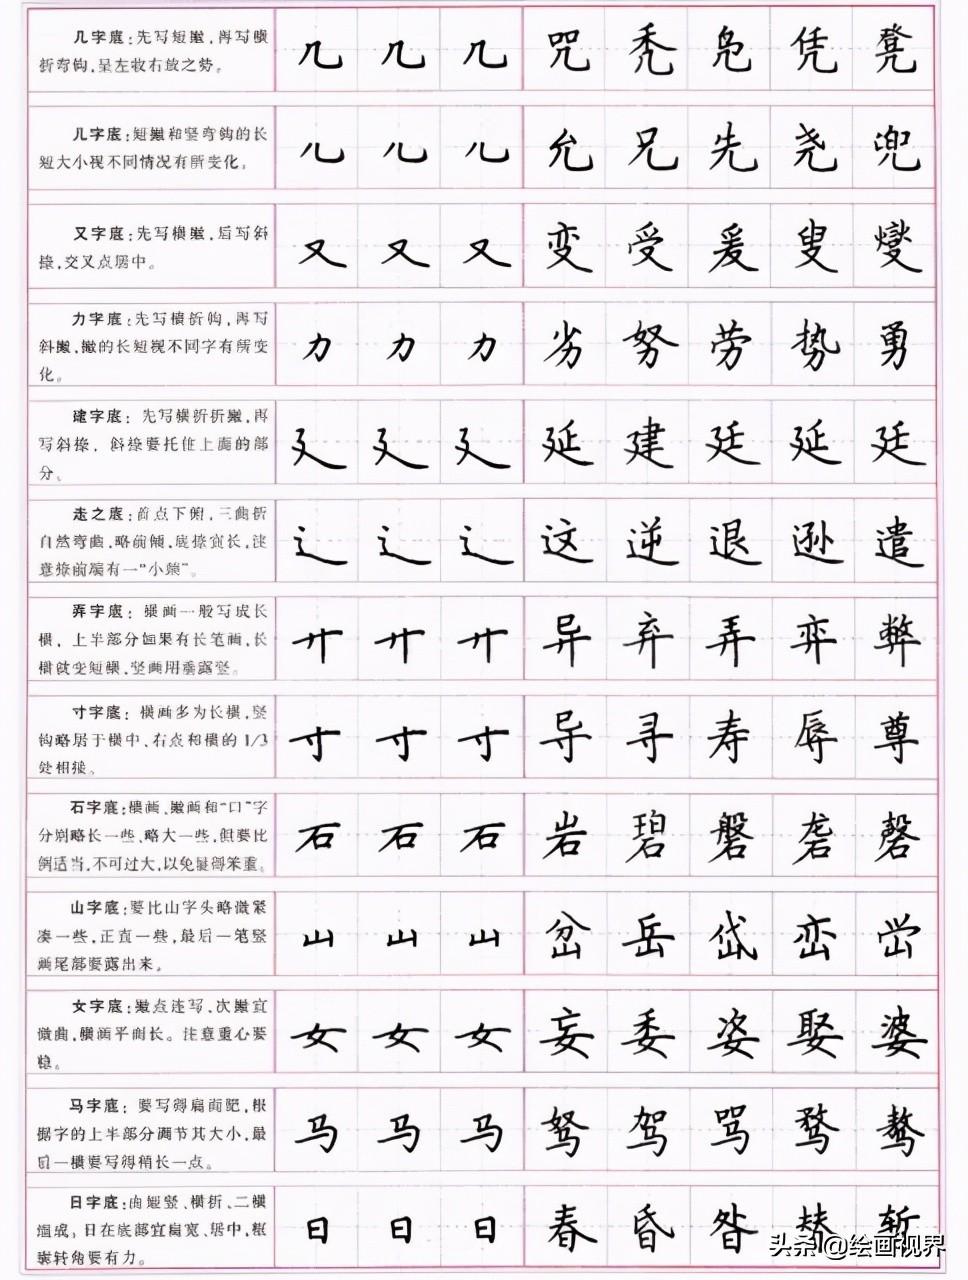 几字底:先写短撇,再写横 几 几 几 咒 秃 凫 凭 凳
折弯钩,呈左收右放之势。
儿字底:短撇和竖弯钩的长 儿 儿 儿 允 兄 先 尧 兜
短大小视不同情况有所变化。
又字底:先写横撇,后写斜 又 又 又 变 受 爰 叟 燮
捺,交叉点居中。
力字底:先写横折钩,再写 力 力 力 劣 努 劳 势 勇
斜撇,撇的长短视不同字有所变
化。
建字底:先写横折折撇,再 廴 廴 廴 延 建 廷 延 廷
写斜捺,斜捺要托住上面的部
分。
走之底:首点下俯,三曲折 辶 辶 辶 这 逆 退 逊 遣
自然弯曲,略前倾,底捺宜长,注
意捺前端有一"小颈"。
弄字底:横画一般写成长 廾 廾 廾 异 弃 弄 弈 弊
横,上半部分如果有长笔画,长
横就变短横,竖画用垂露竖。
寸字底:横画多为长横,竖 寸 寸 寸 导 寻 寿 辱 尊
钩略居于横中、右点和横的1/3
处相接。
石字底:横画、撇画和"口"字 石 石 石 岩 碧 磐 砻 磬
分别略长一些、略大一些,但要比
例适当,不可过大,以免显得笨重。
山字底:要比山字头略微紧 山 山 山 岔 岳 岱 峦 峃
凑一些,正直一些,最后一笔竖
画尾部要露出来。
女字底:撇点连写,次撇宜 女 女 女 妄 委 姿 娶 婆
微曲,横画平而长。注意重心要
稳。
马字底:要写得扁而肥,根 马 马 马 驽 驾 骂 骛 骜
据字的上半部分调节其大小,最
后一横要写得稍长一点。
日字底:由短竖、横折、二横 日 日 日 春 昏 昝 替 暂
组成,日在底部宜扁宽、居中,框
架转角要有力。
头条 @绘画视界